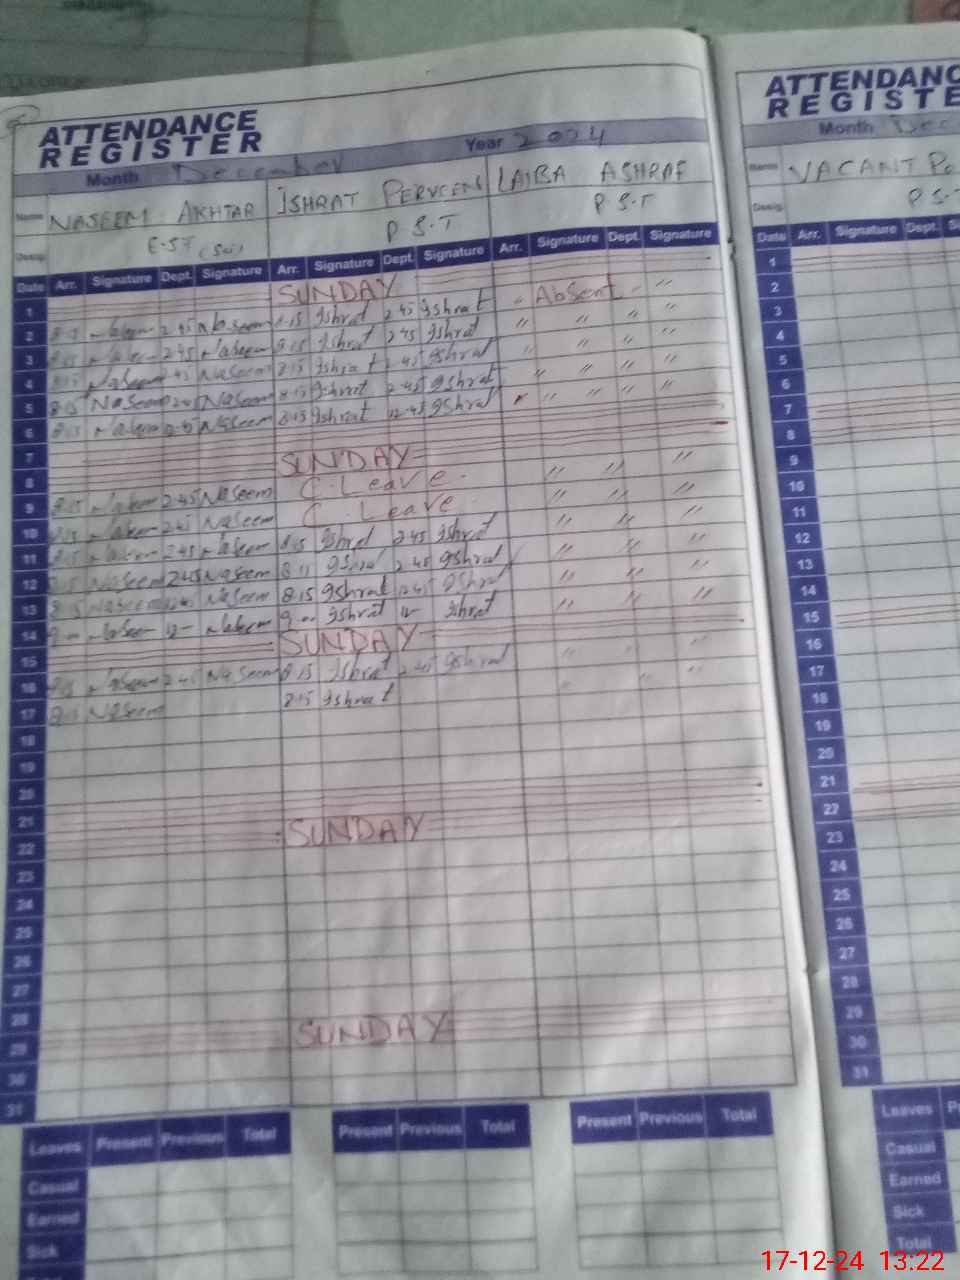 ATTENDANCE
REGISTER
Month December Year 2024
Name NASEEM AKHTAR ISHRAT PERVEEN LAIBA ASHRAF
Desig E.ST P.S.T P.S.T
Date Arr. Signature Dept. Signature Arr. Signature Dept. Signature Arr. Signature Dept. Signature
1 SUNDAY
2 8.15 Naseem 2.45 Naseem 8.15 Ishrat 2.45 Ishrat " Absent " "
3 8.15 Naseem 2.45 Naseem 8.15 Ishrat 2.45 Ishrat " " " "
4 8.15 Naseem 2.45 Naseem 8.15 Ishrat 2.45 Ishrat " " " "
5 8.15 Naseem 2.45 Naseem 8.15 Ishrat 2.45 Ishrat " " " "
6 8.15 Naseem 12.45 Naseem 8.15 Ishrat 12.45 Ishrat " " " "
7
8 SUNDAY
9 8.15 Naseem 2.45 Naseem C. Leave " " "
10 8.15 Naseem 2.45 Naseem C. Leave " " "
11 8.15 Naseem 2.45 Naseem 8.15 Ishrat 2.45 Ishrat " " "
12 8.15 Naseem 2.45 Naseem 8.15 Ishrat 2.45 Ishrat " " "
13 8.15 Naseem 12.45 Naseem 8.15 Ishrat 12.45 Ishrat " " "
14 9.00 Naseem 12 Naseem 9.00 Ishrat 12 Ishrat " " "
15 SUNDAY
16 8.15 Naseem 2.45 Naseem 8.15 Ishrat 2.45 Ishrat " " "
17 8.15 Naseem 8.15 Ishrat " " "
18
19
20
21
22 SUNDAY
23
24
25
26
27
28
29 SUNDAY
30
31
Leaves Present Previous Total Present Previous Total Present Previous Total
Casual
Earned
Sick
ATTENDANC
REGISTE
Month Dec
Name VACANT Po
Desig. P.S.T
Date Arr. Signature Dept. Si
1
2
3
4
5
6
7
8
9
10
11
12
13
14
15
16
17
18
19
20
21
22
23
24
25
26
27
28
29
30
31
Leaves P
Casual
Earned
Sick
Total
17-12-24 13:22